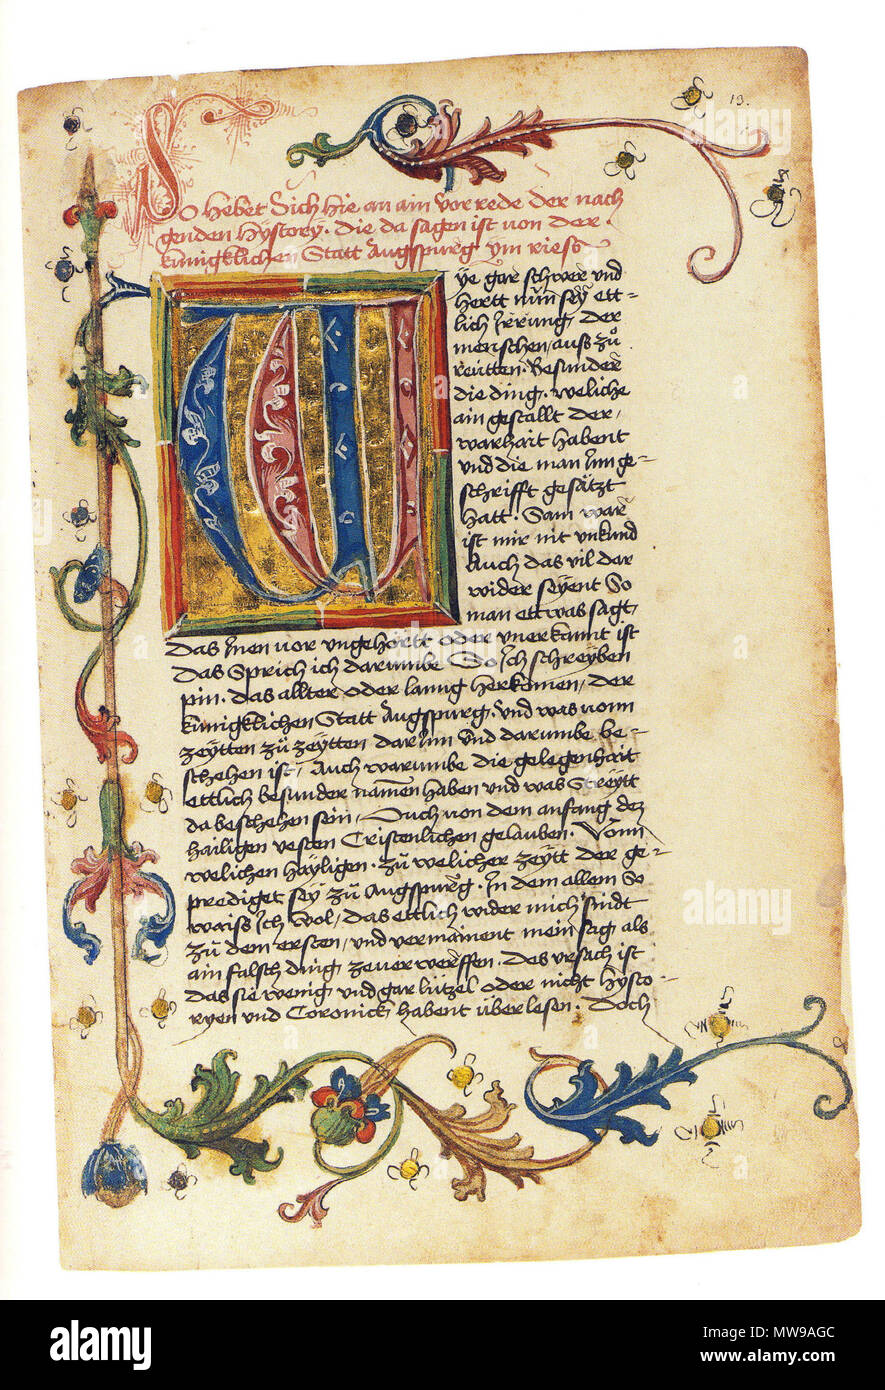 13.
So hebet Sich hie an ain vor rede der nach
genden hÿstorÿ · die da sagen ist von der ·
kunigklichen Statt Augspurg ÿm rieso
Wÿe gar schwer und
hertt nun seÿ ett=
lich Irrung, der
menschen, auss zů
reütten · Besunder
die ding · weliche
ain gestallt der,
warhait habent
und die man Inn ge=
schrifft gesätzt
hatt · Sam war
ist mir nit unkund
Auch das vil dar
wider seÿent So
man ettwas sagt,
das Inen vor ungehortt oder unerkannt ist
Das Sprich ich darumbe So Ich schreÿben
pin · das allter oder lanng herkomen, der
kunigklichen Statt Augspurg · und was vonn
zeÿtten zů zeÿtten darInn und darumbe be=
schehen ist, Auch warumbe die gelegenhait
ettlich besunder namen haben und was Streÿtt
da beschehen sein, Ouch von dem anfang dez
hailigen vesten Cristenlichen gelauben · Vonn
welichen haÿligen · zů welicher zeÿtt der ge=
prediget seÿ zů Augspurg · In dem allem So
waiss Ich Wol, das ettlich wider mich sindt
zů dem ersten, und vermainent mein sag als
ain falsch ding zeverwerffen · Das ursach ist
das sie wenig und gar lützel oder nicht hÿsto=
ryen und Coronick habent überlesen · Doch
alamy
alamy
Image ID: MW9AGC
www.alamy.com